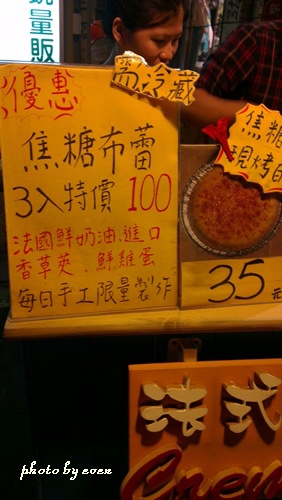 限量販
需冷藏
優惠
焦糖布蕾
3入特價100
法國鮮奶油、進口
香草莢、鮮雞蛋
每日手工限量製作
焦糖
現烤
35元
法式
photo by even